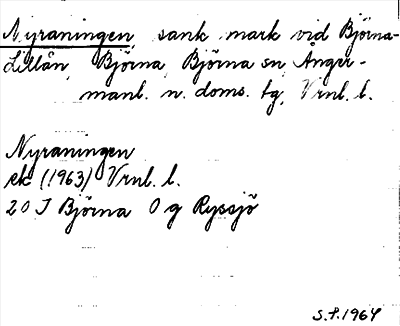 Nyraningen, sank mark vid Björna-
Lillån, Björna, Björna sn, Ånger-
manl. n. doms. tg, Vrnl. l.
Nyraningen
ek (1963) Vrnl. l.
20 J Björna O g Ryssjö
S.f. 1964